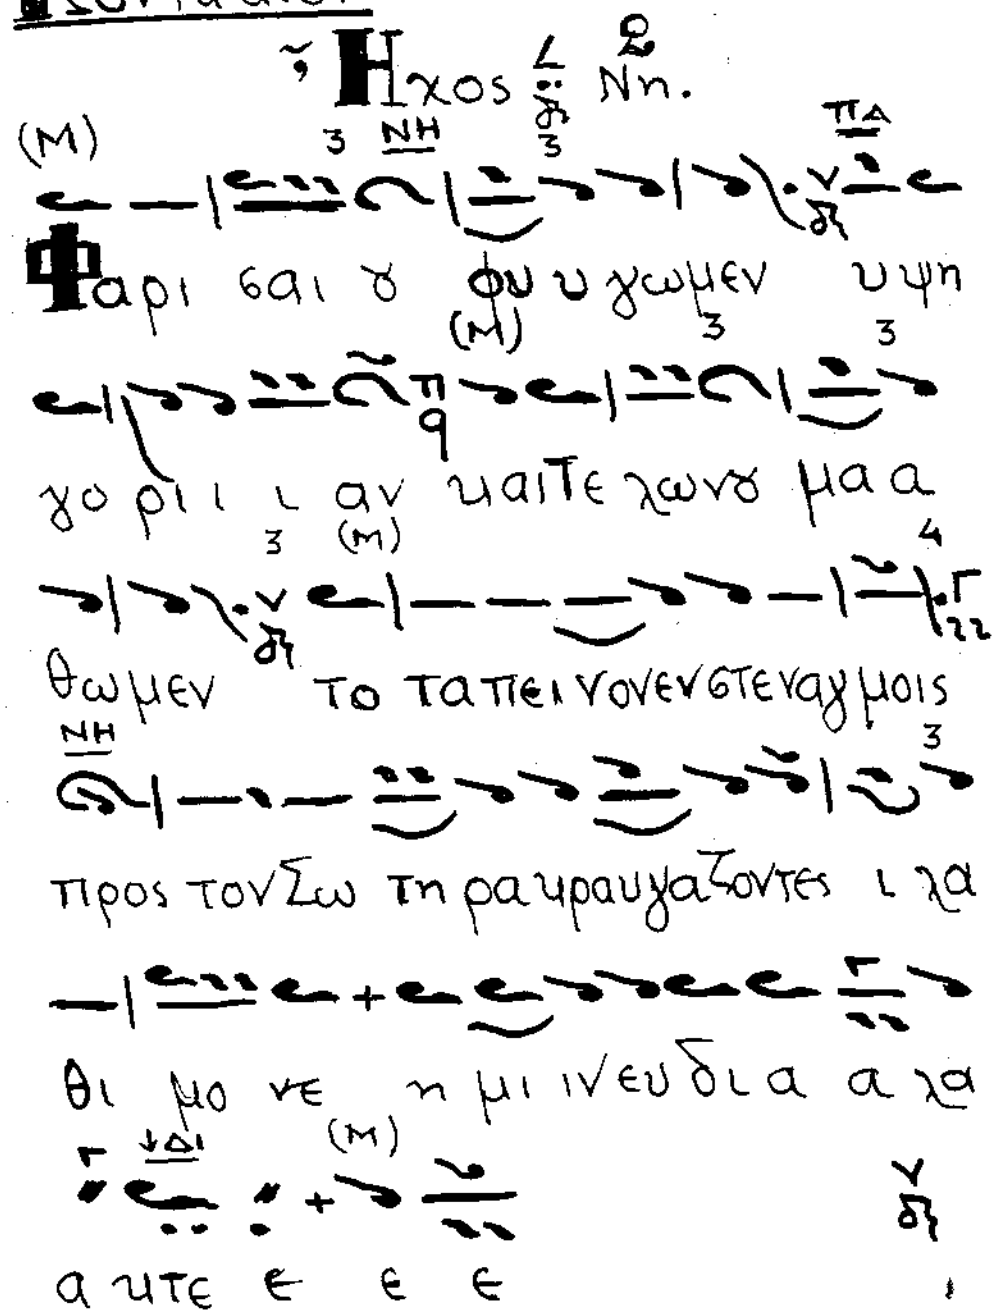 Ἦχος Νη.
(Μ) 3 ΝΗ 3 ΠΑ
Φαρι σαι ȣ φυ υ γωμεν υψη
(Μ) 3 3
γο ρι ι ι αν καιΤε λωνȣ μα α
3 (Μ) 4
θωμεν το ταπεινονενστεναγμοις
ΝΗ 3
προς τονΣω τηρακραυγαζοντες ι λα
θι μο νε η μι ινευδια α λα
↓Δι (Μ)
α κτε ε ε ε